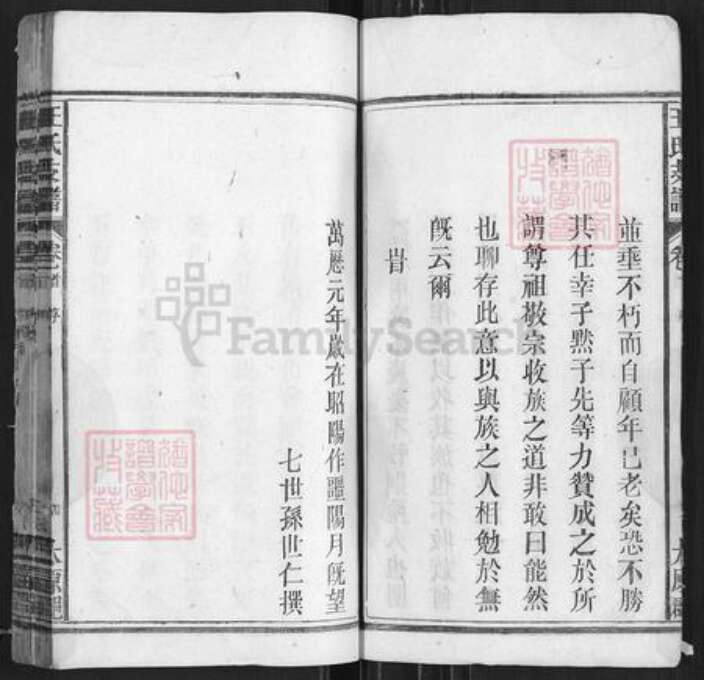 並垂不朽而自顧年已老矣恐不勝
其任幸子黙子先等力贊成之於所
謂尊祖敬宗收族之道非敢曰能然
也聊存此意以與族之人相勉於無
旣云爾
旹
萬歷元年歲在昭陽作噩陽月旣望
七世孫世仁撰
王氏支譜
卷首
序
太原
王氏支譜
FamilySearch